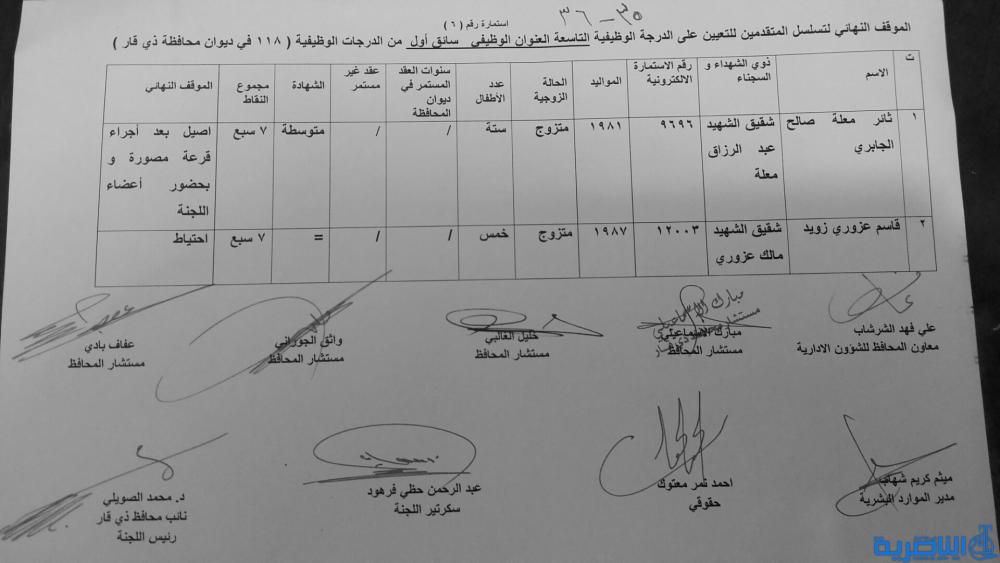 ٣٥-٣٦
استمارة رقم ( ٦ )
الموقف النهائي لتسلسل المتقدمين للتعيين على الدرجة الوظيفية التاسعة العنوان الوظيفي سائق أول من الدرجات الوظيفية ( ١١٨ في ديوان محافظة ذي قار )
ت الاسم ذوي الشهداء و السجناء رقم الاستمارة الالكترونية المواليد الحالة الزوجية عدد الأطفال سنوات العقد المستمر في ديوان المحافظة عقد غير مستمر الشهادة مجموع النقاط الموقف النهائي
١ ثائر معلة صالح الجابري شقيق الشهيد عبد الرزاق معلة ٩٦٩٦ ١٩٨١ متزوج ستة / / متوسطة ٧ سبع اصيل بعد أجراء قرعة مصورة و بحضور أعضاء اللجنة
٢ قاسم عزوري زويد شقيق الشهيد مالك عزوري ١٢٠٠٣ ١٩٨٧ متزوج خمس / / = ٧ سبع احتياط
علي فهد الشرشاب
معاون المحافظ للشؤون الادارية
مبارك الاسماعيلي
مستشار المحافظ
خليل الغالبي
مستشار المحافظ
واثق الجوراني
مستشار المحافظ
عفاف بادي
مستشار المحافظ
ميثم كريم شهاب
مدير الموارد البشرية
احمد ثمر معتوك
حقوقي
عبد الرحمن حظي فرهود
سكرتير اللجنة
د. محمد الصويلي
نائب محافظ ذي قار
رئيس اللجنة
الناصرية